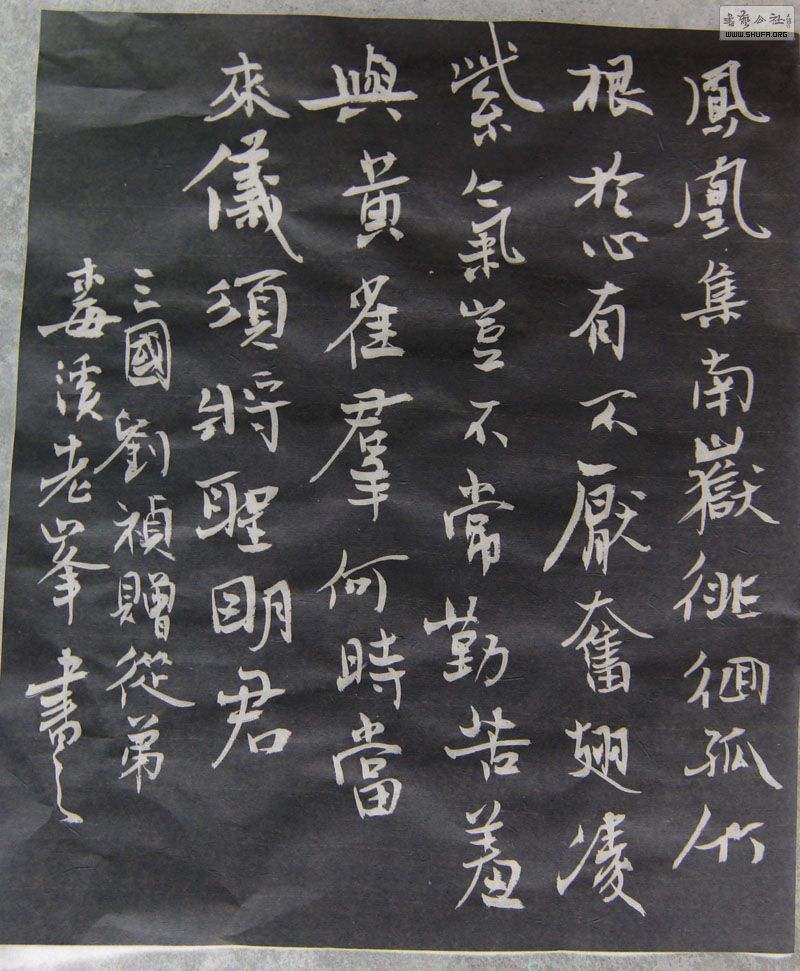 鳳凰集南嶽徘徊孤竹
根於心有不厭奮翅凌
紫氣豈不常勤苦羞
與黃雀羣何時當
來儀須將聖明君
三國劉禎贈從弟
毒溪老峯書之
書藝公社
WWW.SHUFA.ORG